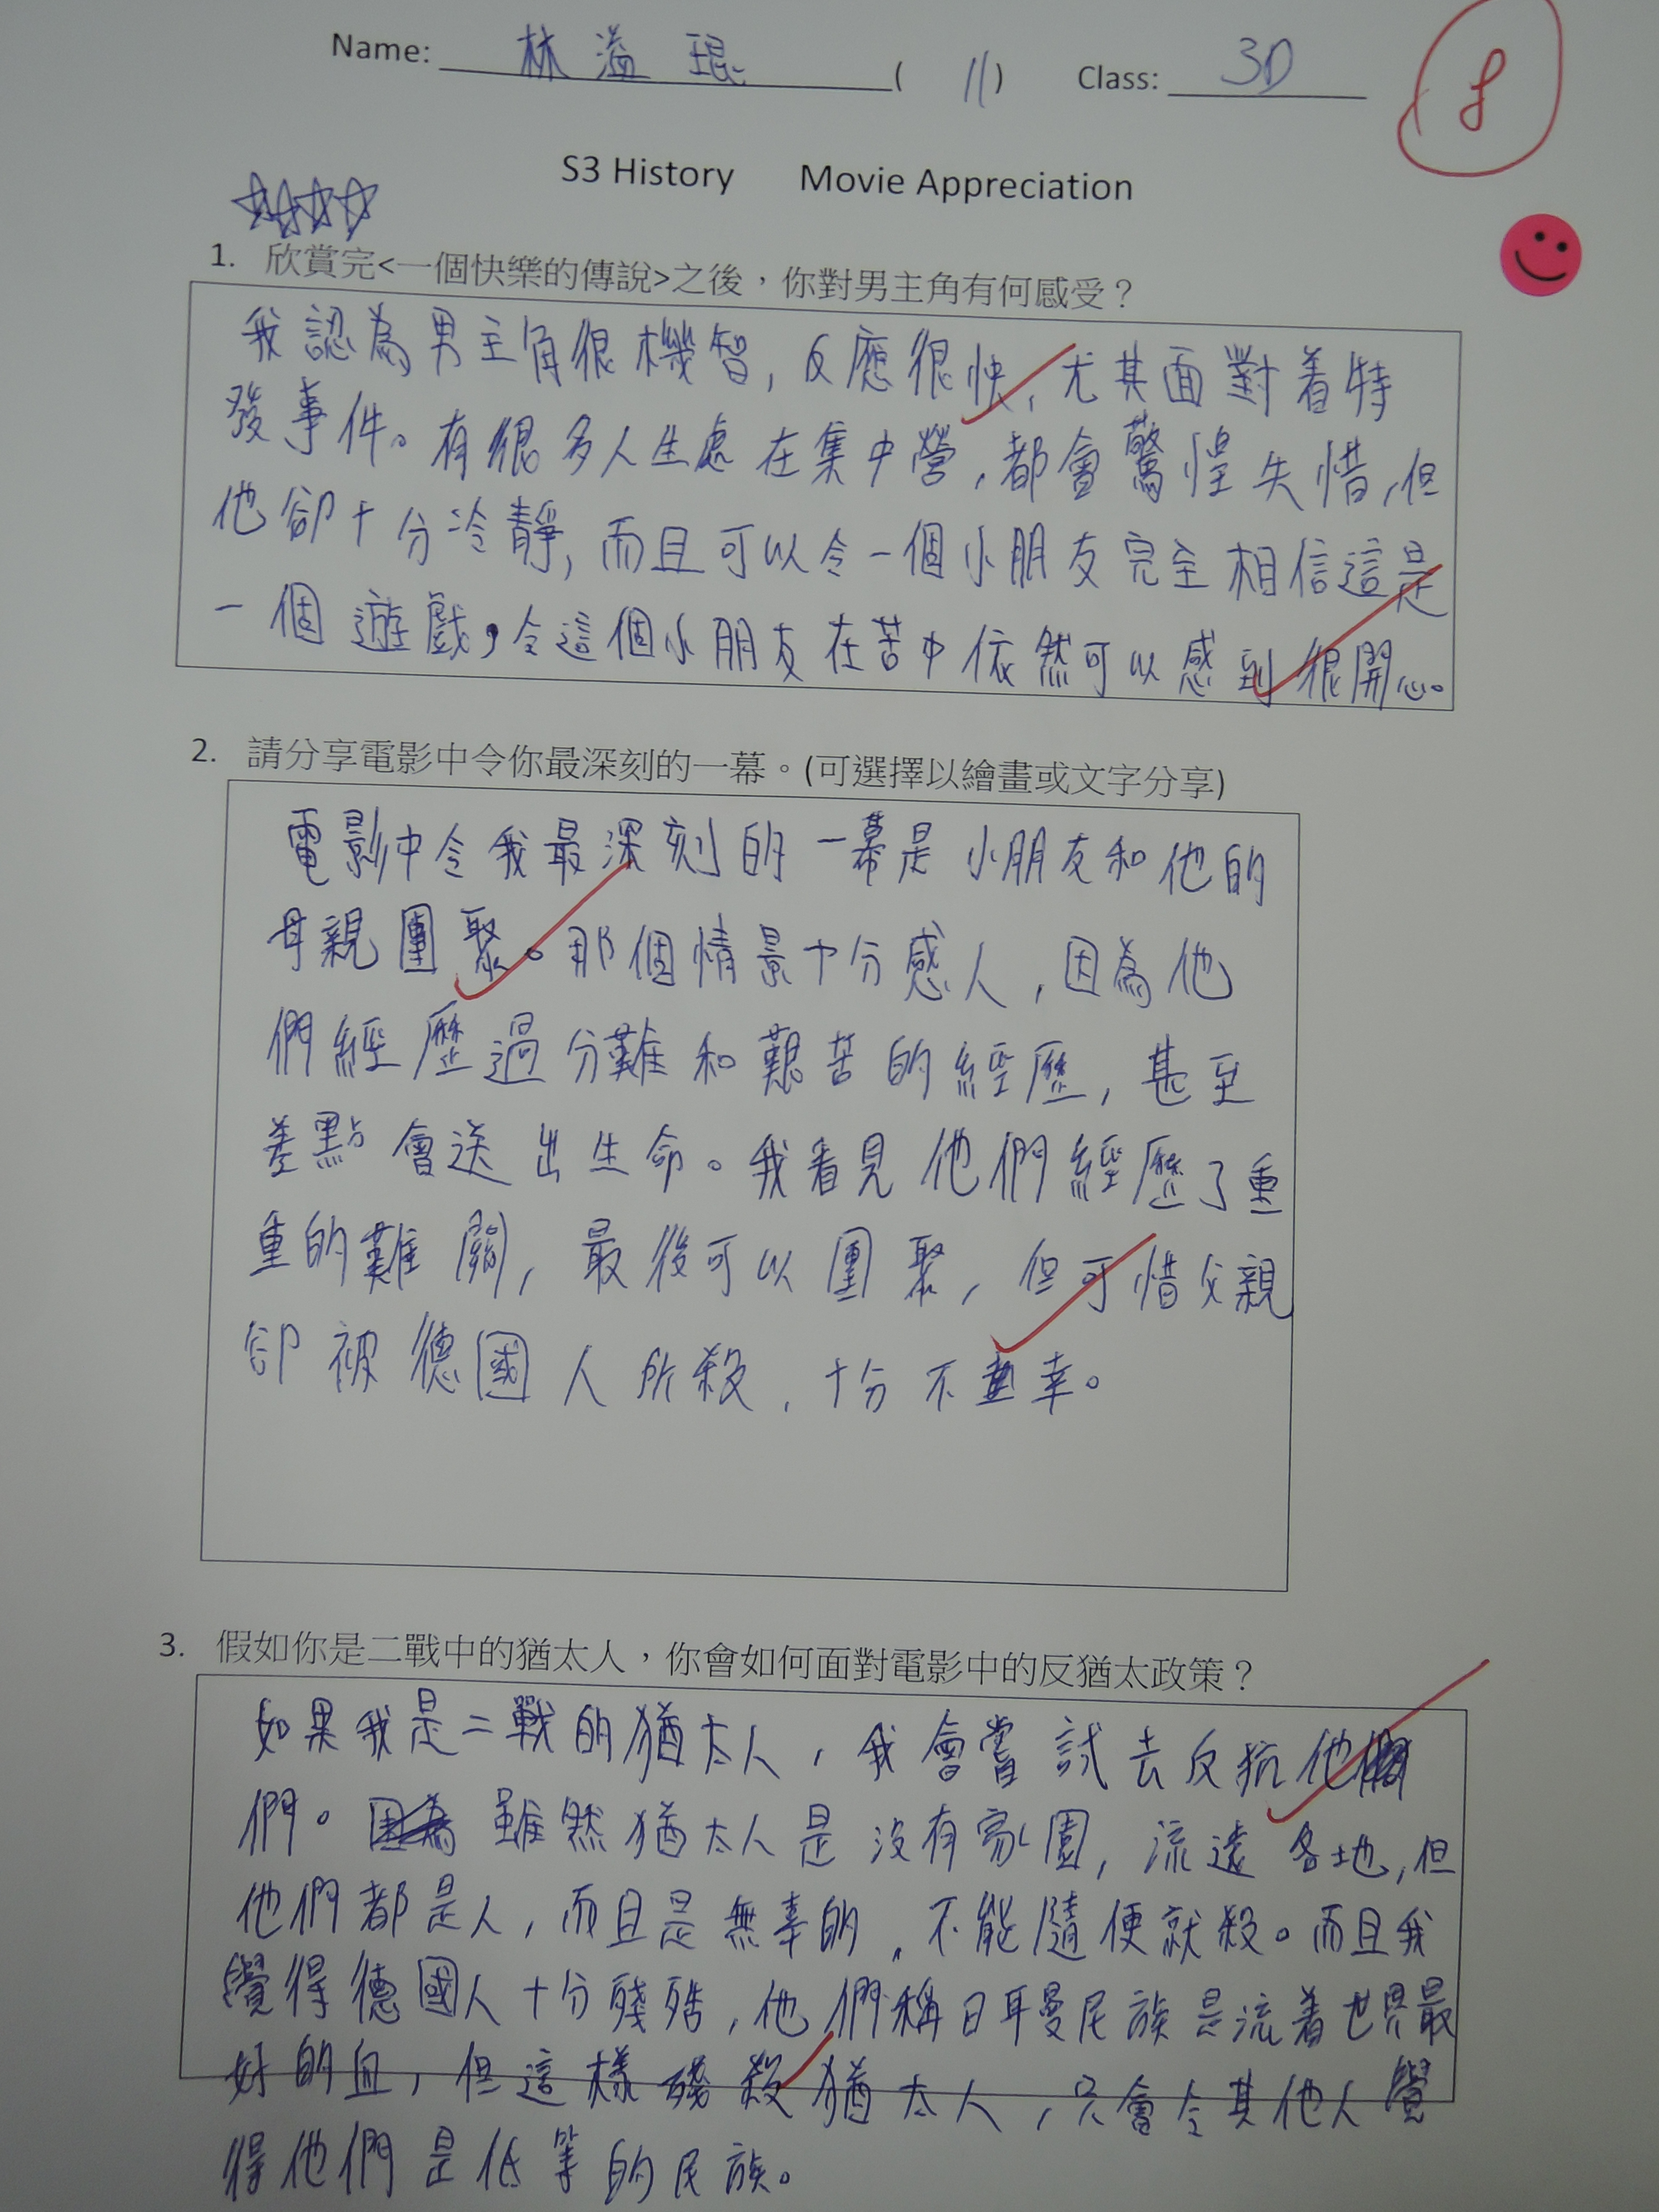 Name: 林溢琨 (11) Class: 3D
8
S3 History Movie Appreciation
1. 欣賞完<一個快樂的傳說>之後，你對男主角有何感受？
我認為男主角很機智，反應很快，尤其面對着特
發事件。有很多人生處在集中營，都會驚惶失惜，但
他卻十分冷靜，而且可以令一個小朋友完全相信這是
一個遊戲，令這個小朋友在苦中依然可以感到很開心。
2. 請分享電影中令你最深刻的一幕。(可選擇以繪畫或文字分享)
電影中令我最深刻的一幕是小朋友和他的
母親團聚。那個情景十分感人，因為他
們經歷過分難和艱苦的經歷，甚至
差點會送出生命。我看見他們經歷了重
重的難關，最後可以團聚，但可惜父親
卻被德國人所殺，十分不幸。
3. 假如你是二戰中的猶太人，你會如何面對電影中的反猶太政策？
如果我是二戰的猶太人，我會嘗試去反抗他
們。雖然猶太人是沒有家園，流遠各地，但
他們都是人，而且是無辜的，不能隨便就殺。而且我
覺得德國人十分殘酷，他們稱日耳曼民族是流着世界最
好的血，但這樣殘殺猶太人，只會令其他人覺
得他們是低等的民族。